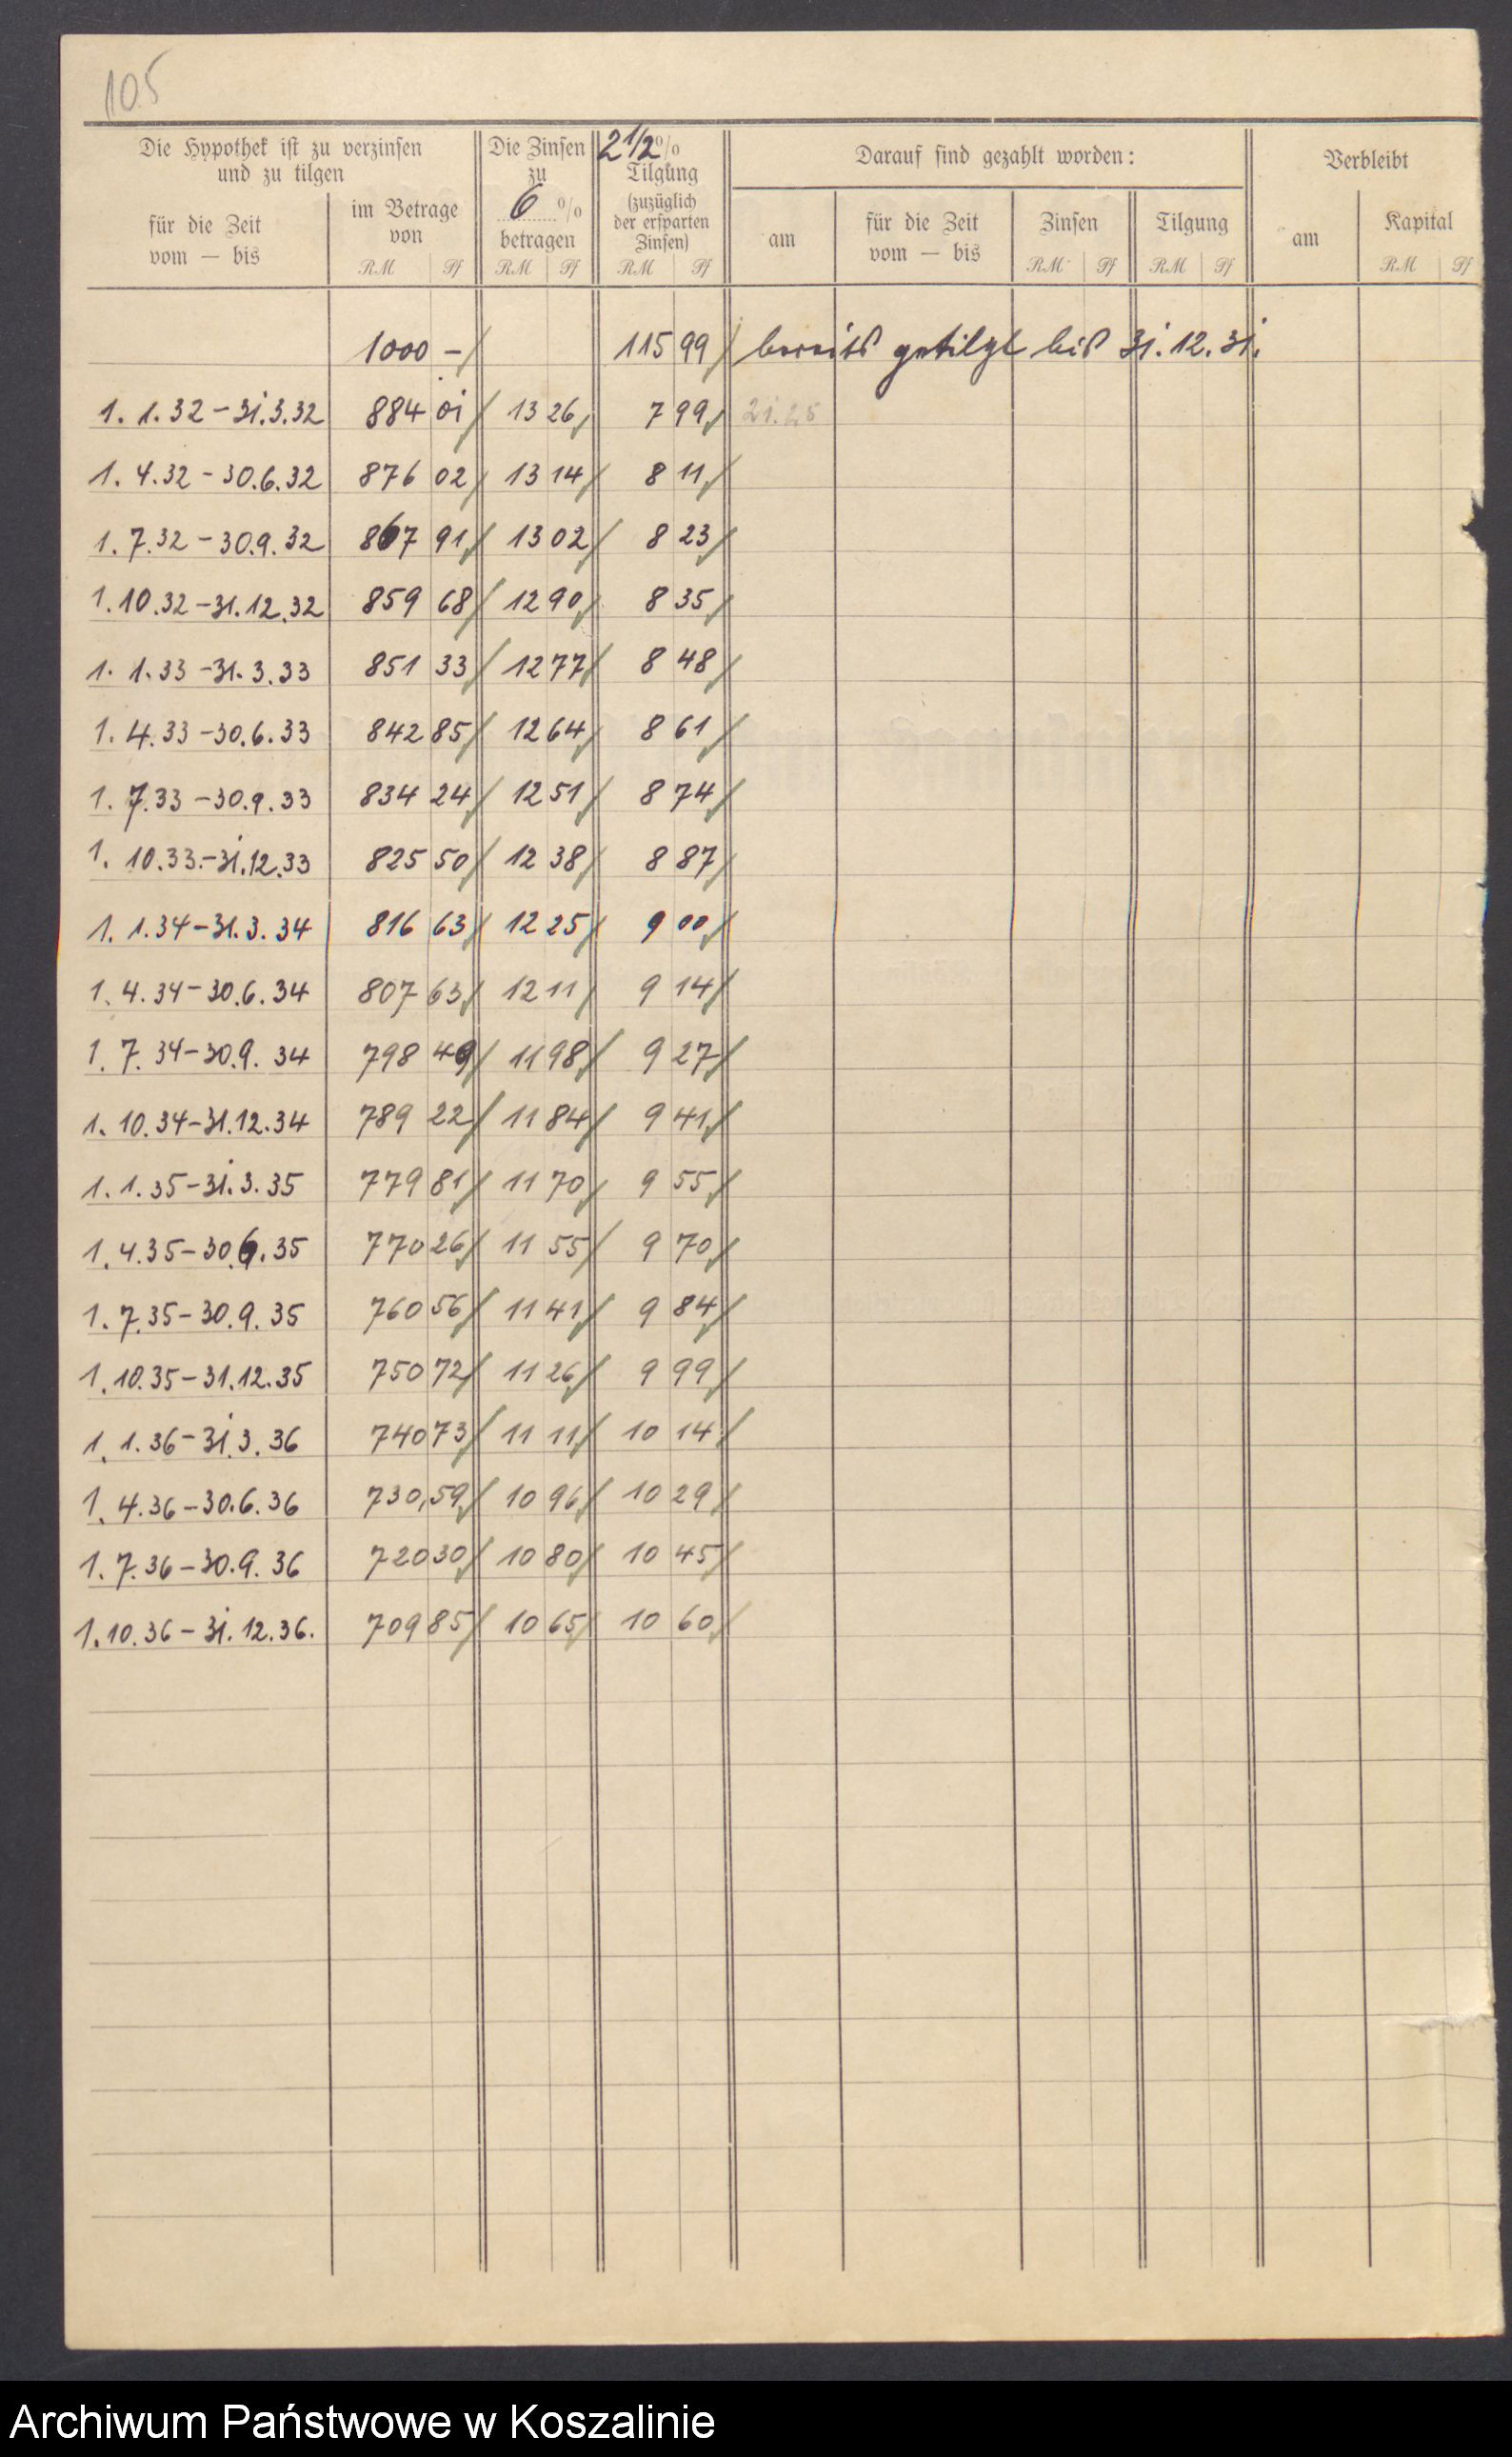 105
Die Hypothek ist zu verzinsen und zu tilgen
für die Zeit vom — bis
im Betrage von
RM Pf
Die Zinsen zu 6 % betragen
RM Pf
2 1/2 % Tilgung (zuzüglich der ersparten Zinsen)
RM Pf
Darauf sind gezahlt worden:
am
für die Zeit vom — bis
Zinsen
RM Pf
Tilgung
RM Pf
Verbleibt
am
Kapital
RM Pf
1000 - 115 99 bereits getilgt bis 31.12.31.
1.1.32 - 31.3.32 884 01 13 26 7 99 21.25
1.4.32 - 30.6.32 876 02 13 14 8 11
1.7.32 - 30.9.32 867 91 13 02 8 23
1.10.32 - 31.12.32 859 68 12 90 8 35
1.1.33 - 31.3.33 851 33 12 77 8 48
1.4.33 - 30.6.33 842 85 12 64 8 61
1.7.33 - 30.9.33 834 24 12 51 8 74
1.10.33. - 31.12.33 825 50 12 38 8 87
1.1.34 - 31.3.34 816 63 12 25 9 00
1.4.34 - 30.6.34 807 63 12 11 9 14
1.7.34 - 30.9.34 798 49 11 98 9 27
1.10.34 - 31.12.34 789 22 11 84 9 41
1.1.35 - 31.3.35 779 81 11 70 9 55
1.4.35 - 30.6.35 770 26 11 55 9 70
1.7.35 - 30.9.35 760 56 11 41 9 84
1.10.35 - 31.12.35 750 72 11 26 9 99
1.1.36 - 31.3.36 740 73 11 11 10 14
1.4.36 - 30.6.36 730,59 10 96 10 29
1.7.36 - 30.9.36 720 30 10 80 10 45
1.10.36 - 31.12.36. 709 85 10 65 10 60
Archiwum Państwowe w Koszalinie